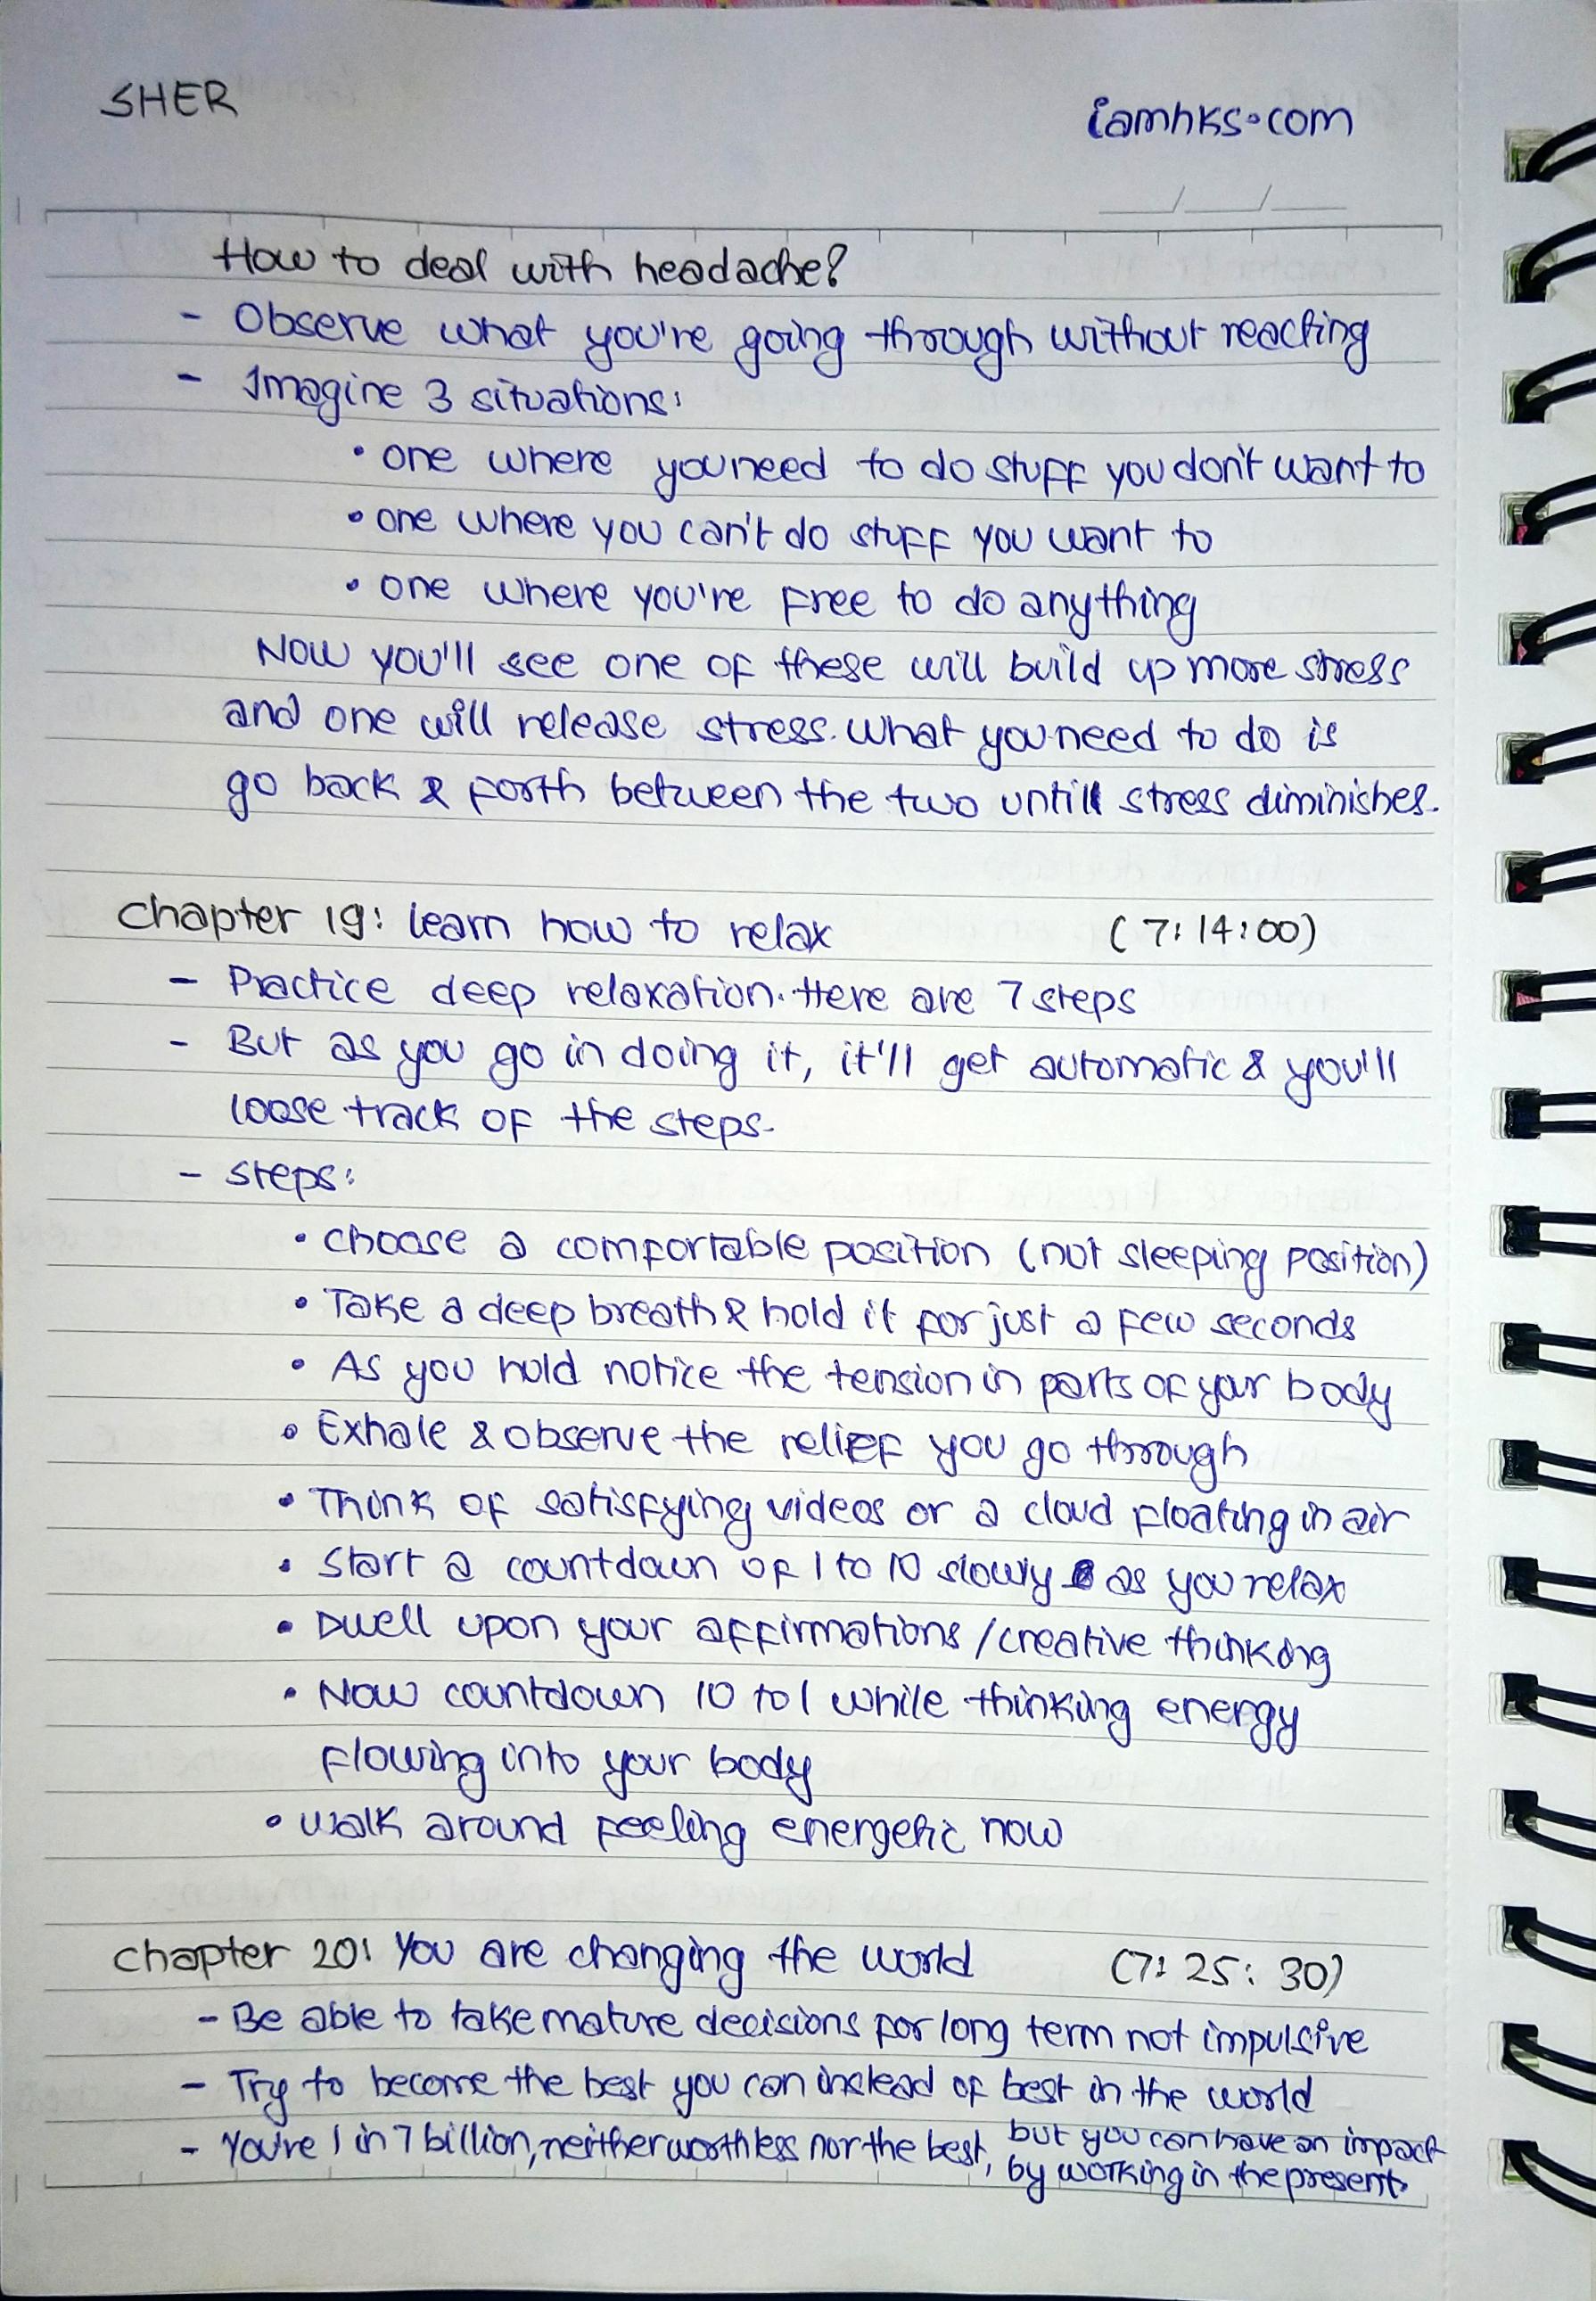 SHER
iamhks.com
How to deal with headache?
- Observe what you're going through without reacting
- Imagine 3 situations:
• one where you need to do stuff you don't want to
• one where you can't do stuff you want to
• one where you're free to do anything
Now you'll see one of these will build up more stress
and one will release stress. What you need to do is
go back & forth between the two untill stress diminishes.
Chapter 19: Learn how to relax (7:14:00)
- Practice deep relaxation. Here are 7 steps
- But as you go in doing it, it'll get automatic & you'll
loose track of the steps.
- Steps:
• Choose a comfortable position (not sleeping position)
• Take a deep breath & hold it for just a few seconds
• As you hold notice the tension in parts of your body
• Exhale & observe the relief you go through
• Think of satisfying videos or a cloud floating in air
• Start a countdown of 1 to 10 slowly as you relax
• Dwell upon your affirmations/creative thinking
• Now countdown 10 to 1 while thinking energy
flowing into your body
• Walk around feeling energetic now
Chapter 20: You are changing the world (7:25:30)
- Be able to take mature decisions for long term not impulsive
- Try to become the best you can instead of best in the world
- You're 1 in 7 billion, neither worthless nor the best, but you can have an impact
by working in the present.